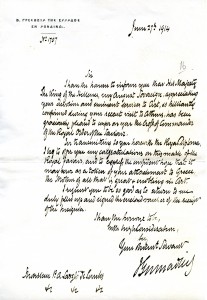 Β. ΠΡΕΣΒΕΙΑ ΤΗΣ ΕΛΛΑΔΟΣ
ΕΝ ΛΟΝΔΙΝΩ
No 1757
June 27th 1914
Sir
I have the honour to inform you that His Majesty
the King of the Hellenes, my August Sovereign, appreciating
your devotion and eminent services to Art, so brilliantly
confirmed during your recent visit to Athens, has been
graciously pleased to confer on you the Cross of Commander
of His Royal Order of the Saviour.
In transmitting to you herewith the Royal Diploma,
I beg to offer you my congratulations on this mark of the
Royal favour and to express the confident hope that it
may serve as a token of your attachment to Greece
the Mother of all that is great &
I request you to be so good as to return to me
duly filled up and signed the enclosed form of the receipt
of the Insignia.
I have the honour to be,
with high consideration,
Sir
Your obedient Servant
Monsieur P. A.
&c &c &c